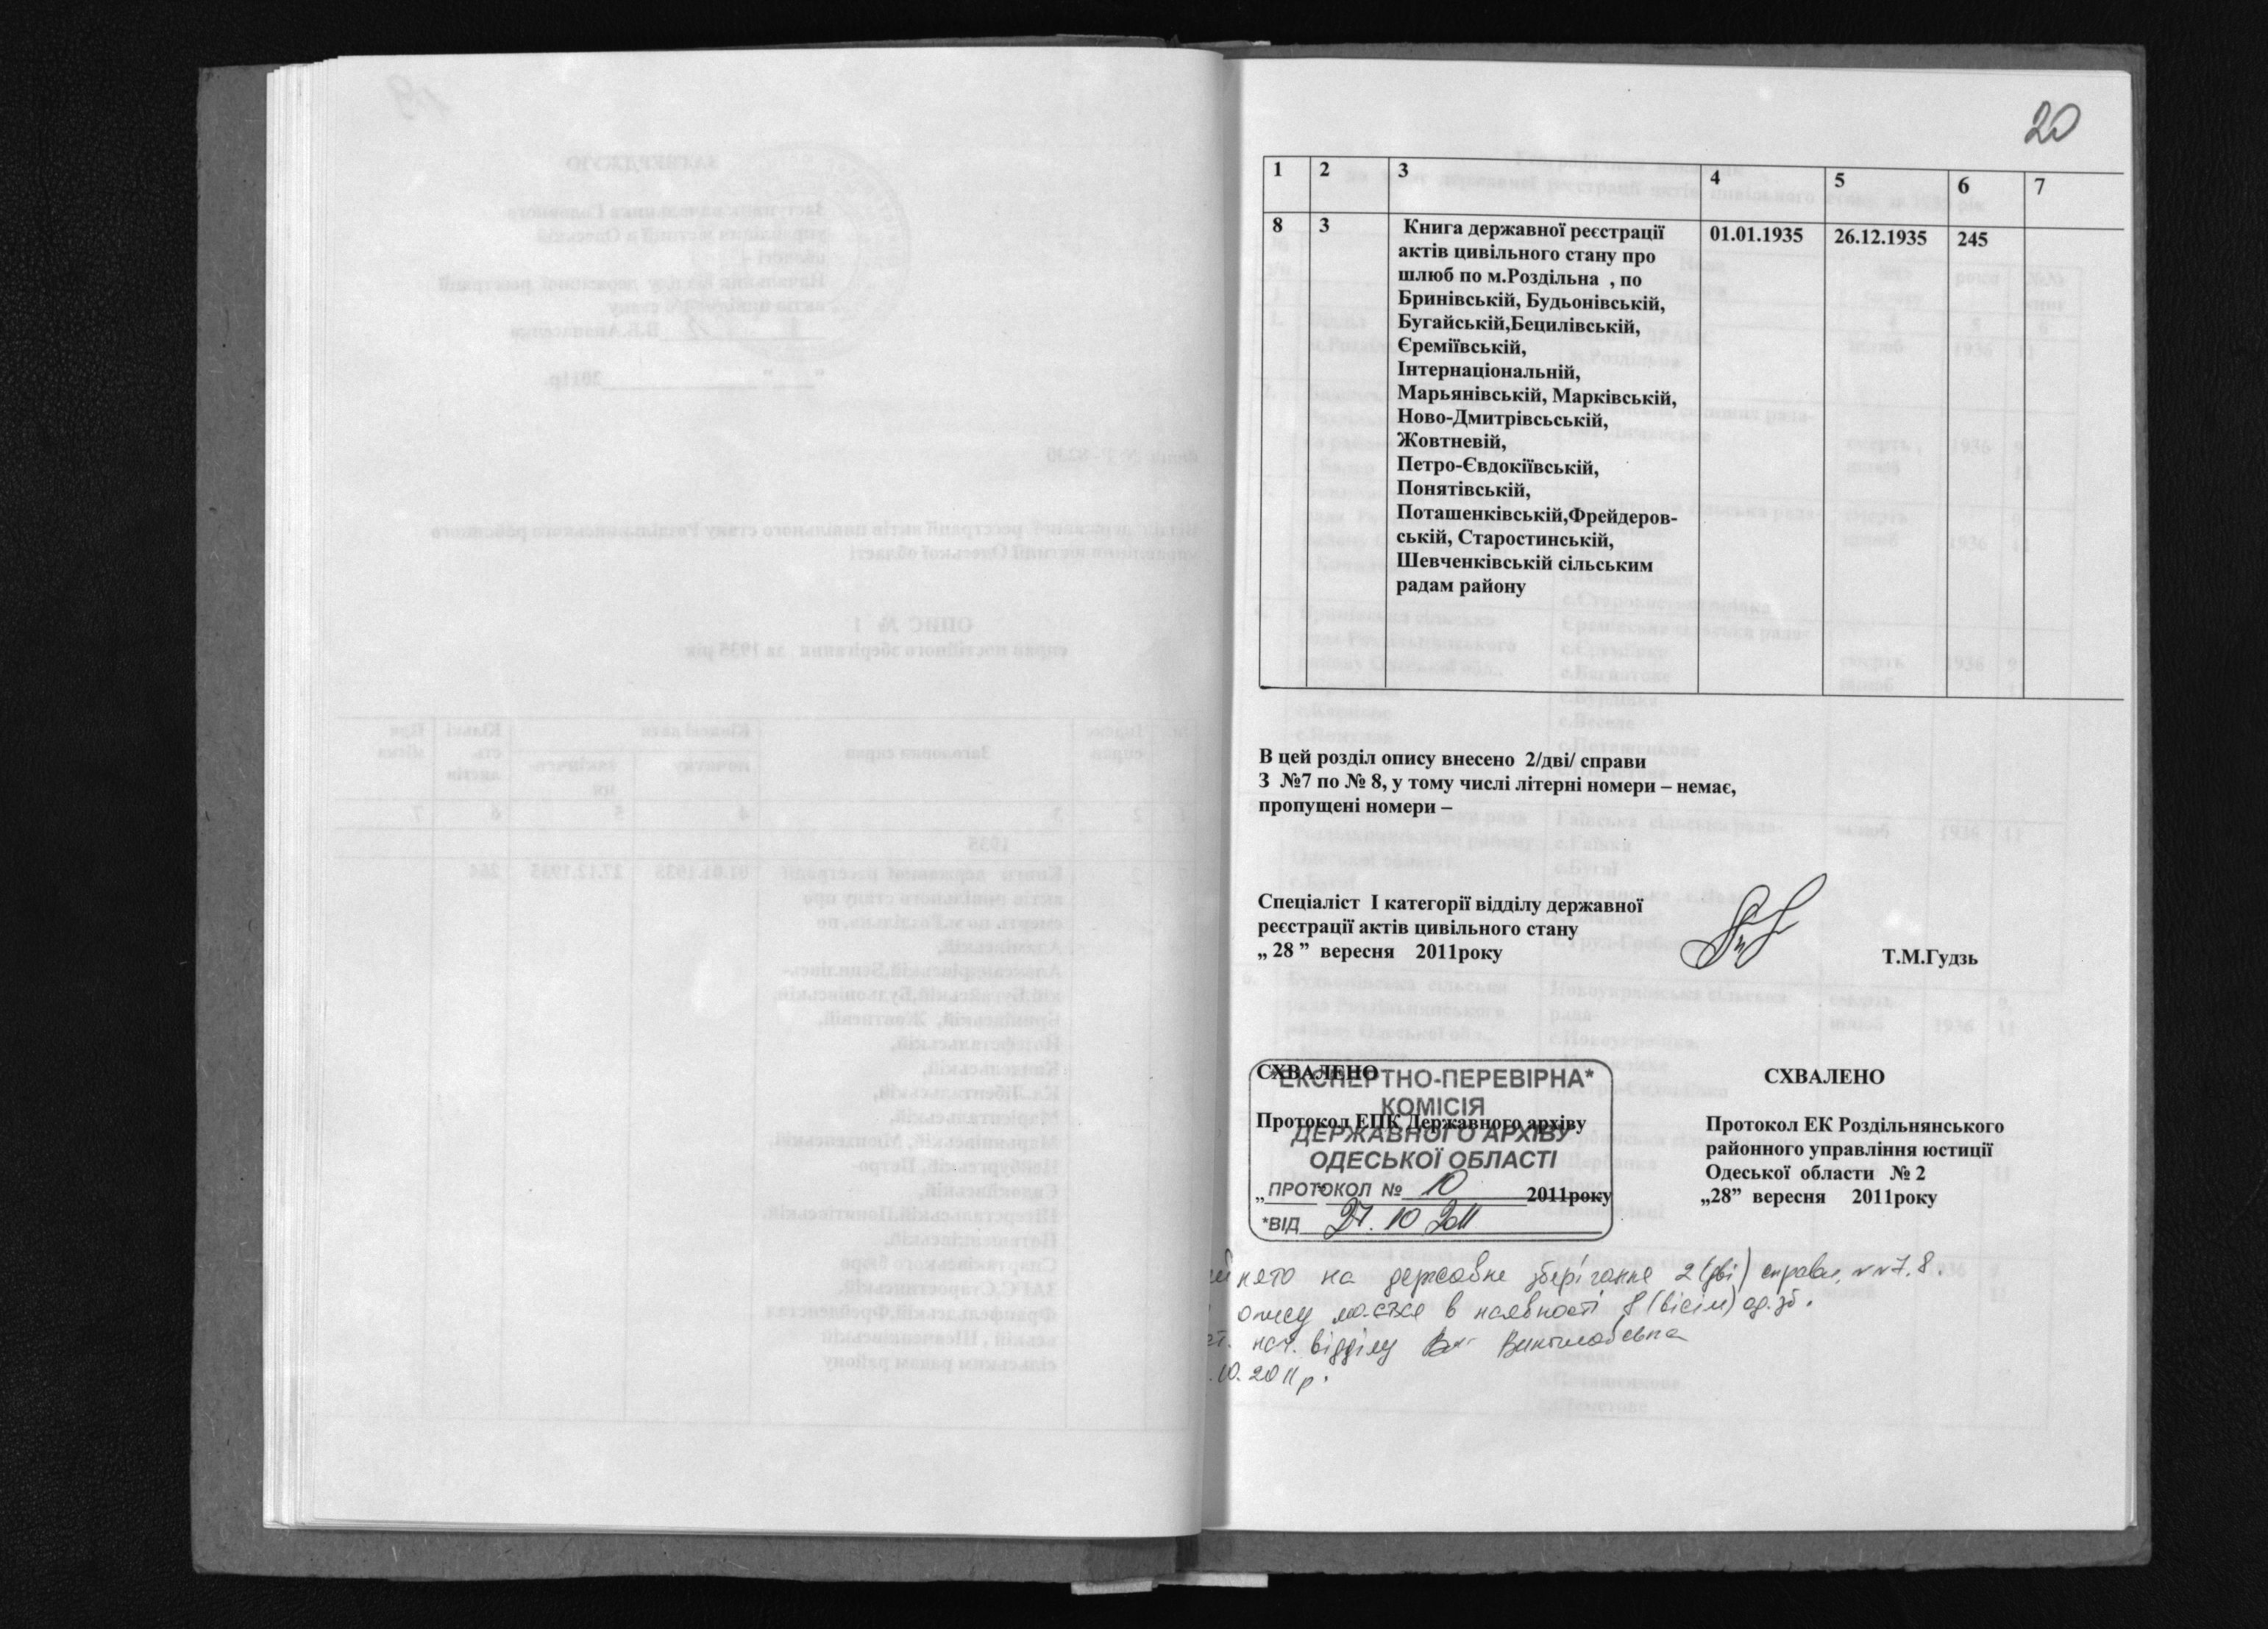 20
1 2 3 4 5 6 7
8 3 Книга державної реєстрації 01.01.1935 26.12.1935 245
актів цивільного стану про
шлюб по м.Роздільна , по
Бринівській, Будьонівській,
Бугайській,Бецилівській,
Єреміївській,
Інтернаціональній,
Марьянівській, Марківській,
Ново-Дмитрівсьській,
Жовтневій,
Петро-Євдокіївській,
Понятівській,
Поташенківській,Фрейдеров-
ській, Старостинській,
Шевченківській сільським
радам району
В цей розділ опису внесено 2/дві/ справи
З №7 по № 8, у тому числі літерні номери – немає,
пропущені номери –
Спеціаліст І категорії відділу державної
реєстрації актів цивільного стану
„ 28 ” вересня 2011року
Т.М.Гудзь
СХВАЛЕНО
Протокол ЕПК Державного архіву
2011року
*ЕКСПЕРТНО-ПЕРЕВІРНА*
КОМІСІЯ
ДЕРЖАВНОГО АРХІВУ
ОДЕСЬКОЇ ОБЛАСТІ
ПРОТОКОЛ № 10
*ВІД 27. 10 2011
СХВАЛЕНО
Протокол ЕК Роздільнянського
районного управління юстиції
Одеської области № 2
„28” вересня 2011року
нято на державне зберігання 2 (дві) справи, №№7.8.
опису в наявності 8 (вісім) од.зб.
нач. відділу
.10.2011р.